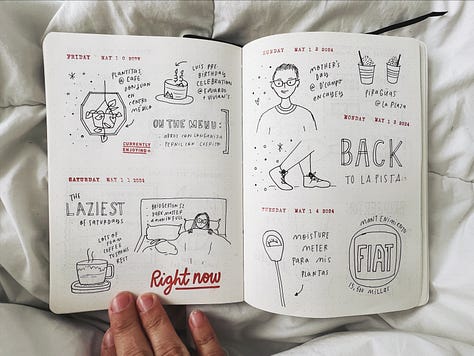 FRIDAY MAY 10 2024
PLANTITAS
@ CAFÉ
DONJUAN
EN
CENTRO
LUIS' PRE-
BIRTHDAY
CELEBRATION
@ EDUARDO
+ VIVIAN'S
ON THE MENU:
ARROZ CON LONGANIZA
PERNIL CON CUERITO
CURRENTLY
ENJOYING
SATURDAY MAY 11 2024
THE
LAZIEST
OF SATURDAYS
LOTS OF
COFFEE
TO
REST
BRIDGERTON S2
DARK MATTER
Right now
SUNDAY MAY 12 2024
MOTHER'S
DAY
@ D'CAMPO
EN CAYEY
PIRAGUAS
@ LA PLAZA
MONDAY MAY 13 2024
BACK
TO LA PISTA
TUESDAY MAY 14 2024
MOISTURE
METER
PARA MIS
PLANTAS
MANTENIMIENTO
FIAT
MILLAS